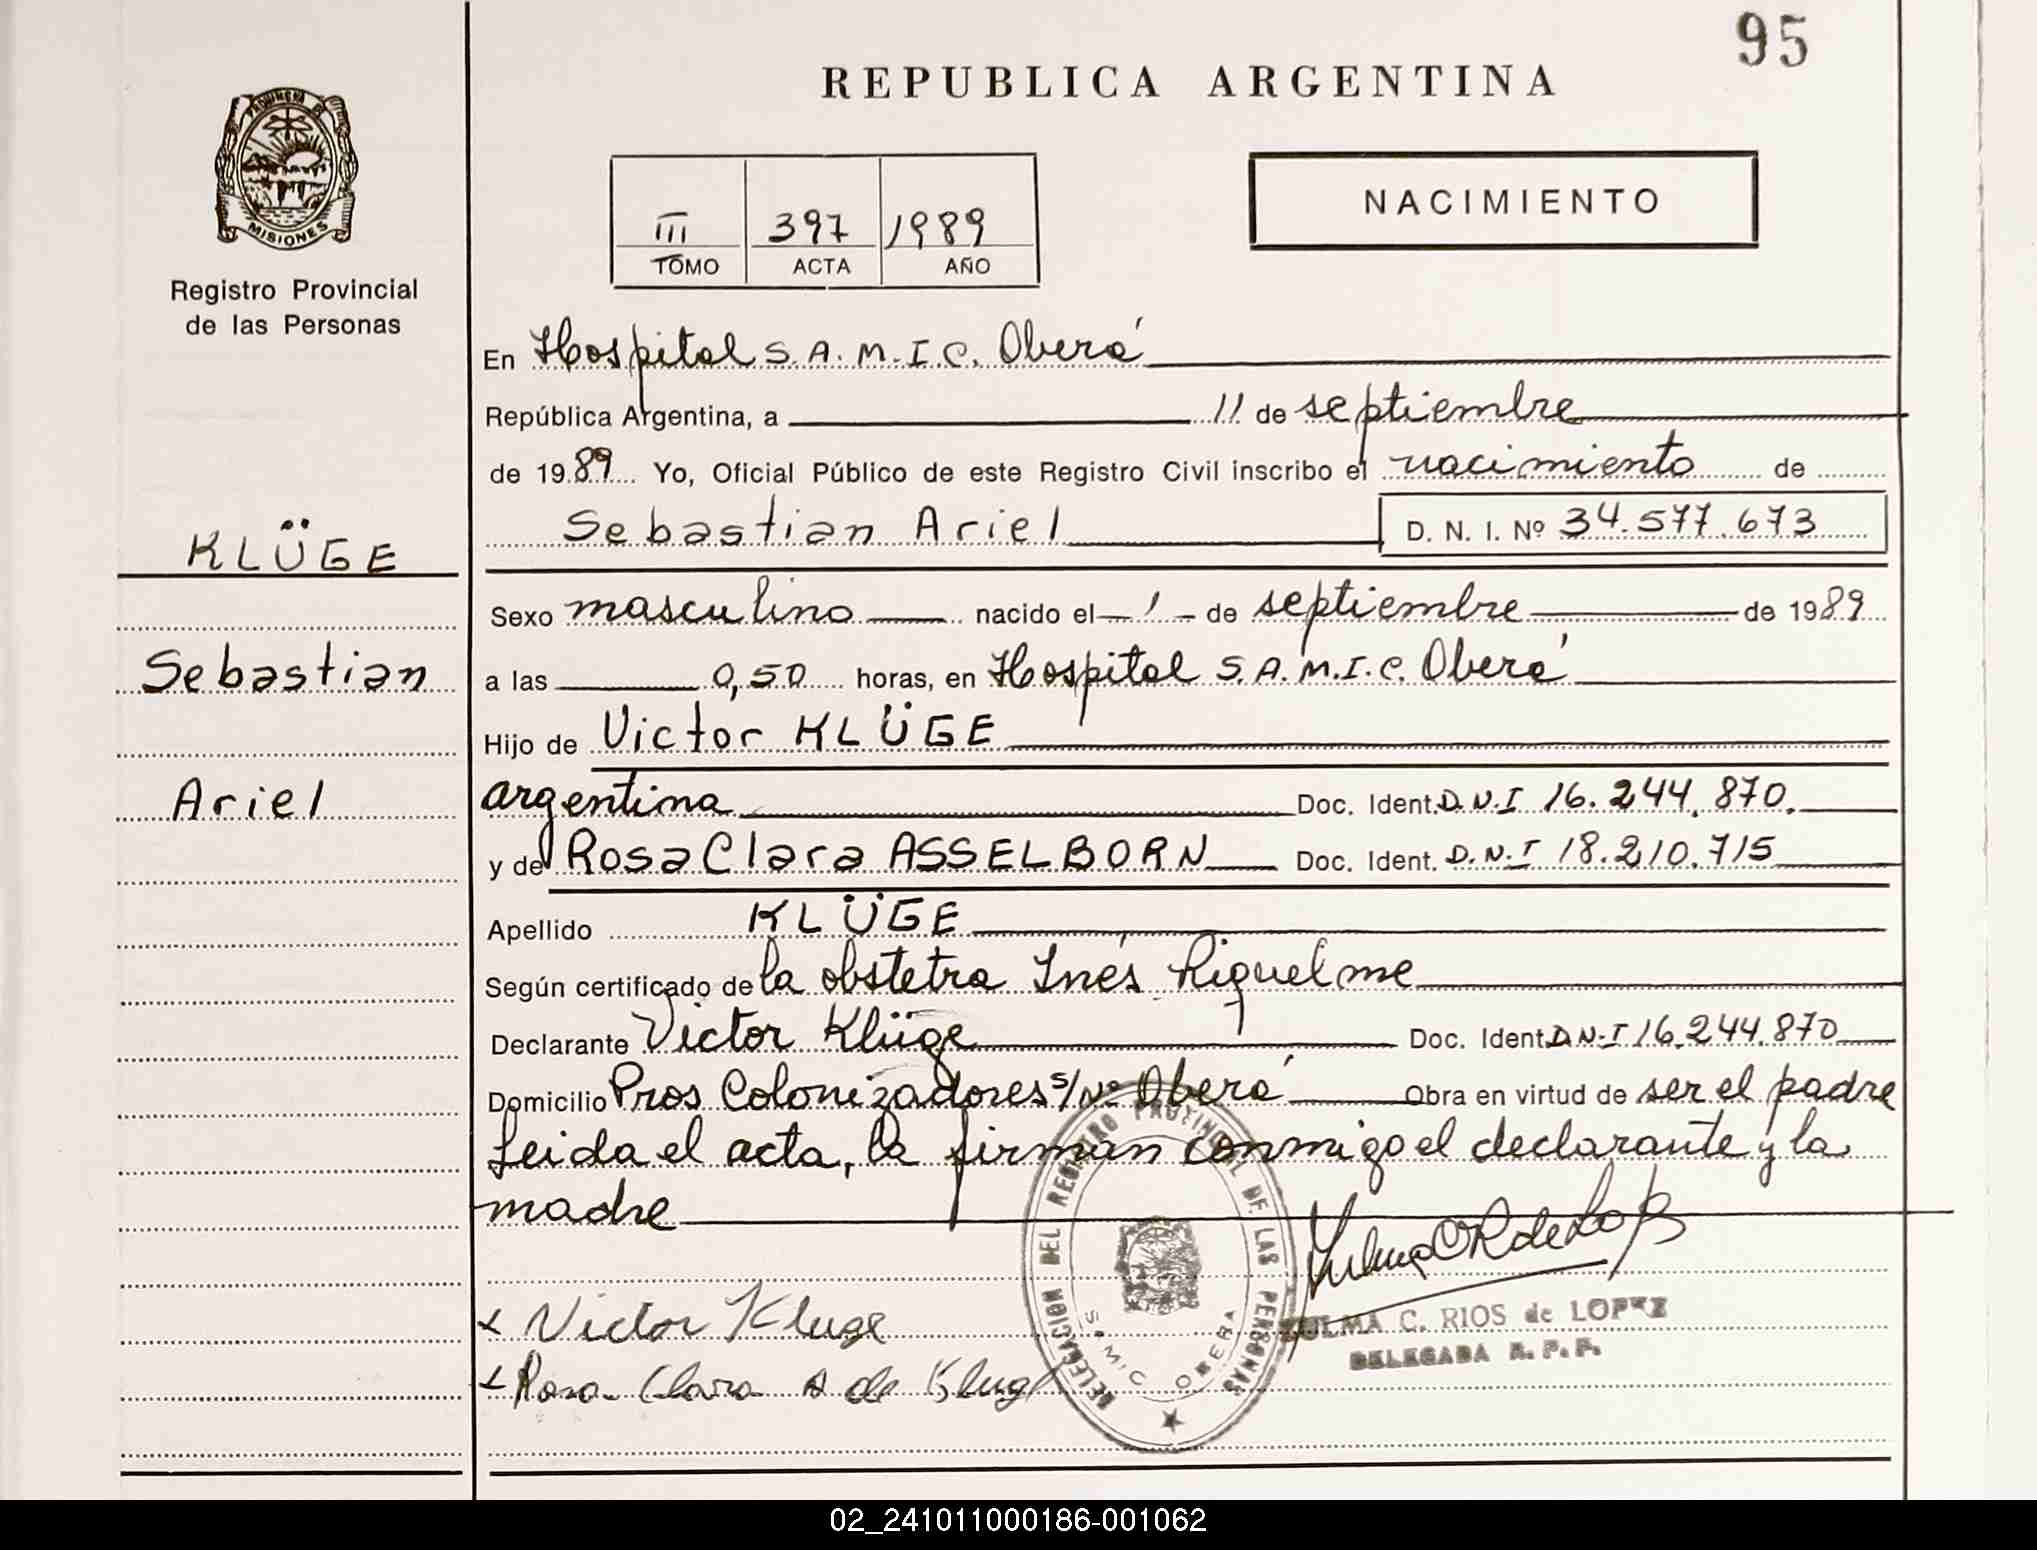 95
REPUBLICA ARGENTINA
PROVINCIA DE
MISIONES
Registro Provincial
de las Personas
NACIMIENTO
III 397 1989
TOMO ACTA AÑO
En Hospital S.A.M.I.C. Oberá
República Argentina, a 11 de septiembre
de 1989 Yo, Oficial Público de este Registro Civil inscribo el nacimiento de
Sebastian Ariel D. N. I. Nº 34.577.673
KLÜGE
Sebastian
Ariel
Sexo masculino nacido el 1 de septiembre de 1989
a las 0,50 horas, en Hospital S.A.M.I.C. Oberá
Hijo de Victor KLÜGE
argentina Doc. Ident. D.N.I 16.244.870.
y de Rosa Clara ASSELBORN Doc. Ident. D.N.I 18.210.715
Apellido KLÜGE
Según certificado de la obstetra Inés Riquelme
Declarante Victor Klüge Doc. Ident. D.N.I 16.244.870
Domicilio Pros Colonizadores s/Nº Oberá Obra en virtud de ser el padre
Leida el acta, la firman conmigo el declarante y la
madre
Victor Kluge
Rosa Clara A de Kluge
DELEGACION DEL REGISTRO PROVINCIAL DE LAS PERSONAS
SAMIC OBERA
ZULMA C. RIOS de LOPEZ
DELEGADA R. P. P.
02_241011000186-001062